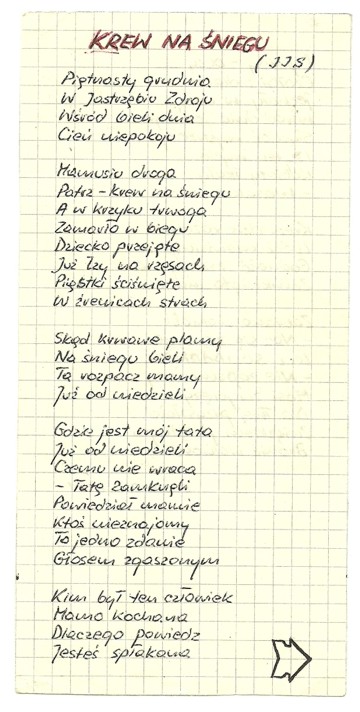 KREW NA ŚNIEGU
(JJS)
Piętnasty grudnia
W Jastrzębiu Zdroju
Wśród bieli dnia
Cień niepokoju
Mamusiu droga
Patrz - krew na śniegu
A w krzyku trwoga
Zamarło w biegu
Dziecko przejęte
Już łzy na rzęsach
Piąstki ściśnięte
W źrenicach strach
Skąd krwawe plamy
Na śniegu bieli
Ta rozpacz mamy
Już od niedzieli
Gdzie jest mój tata
Już od niedzieli
Czemu nie wraca
- Tatę zamknęli
Powiedział mamie
Ktoś nieznajomy
To jedno zdanie
Głosem zgaszonym
Kim był ten człowiek
Mamo kochana
Dlaczego powiedz
Jesteś spłakana